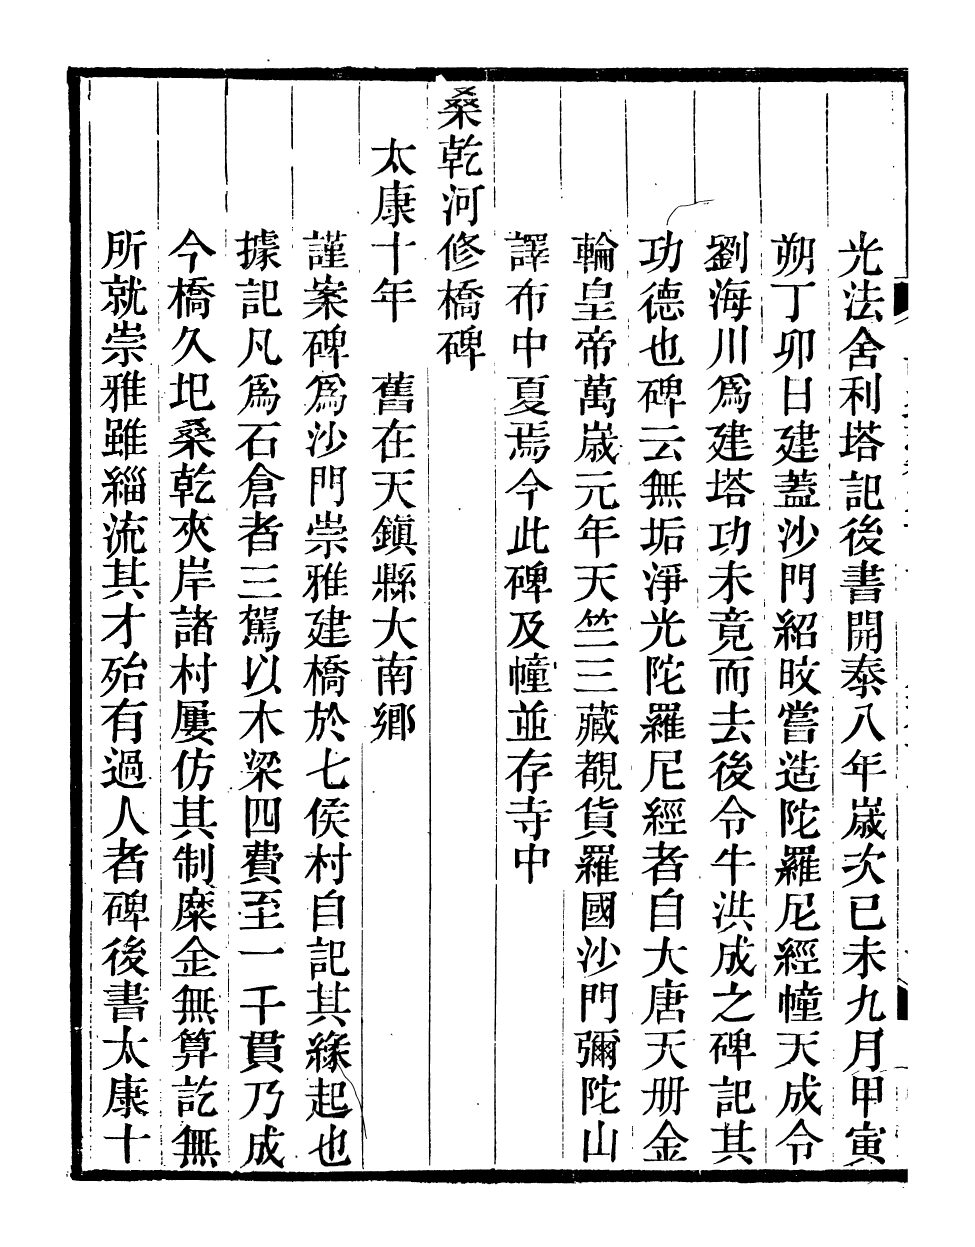 光法舍利塔記後書開泰八年歲次己未九月甲寅
朔丁卯日建蓋沙門紹旼嘗造陀羅尼經幢天成令
劉海川爲建塔功未竟而去後令牛洪成之碑記其
功德也碑云無垢淨光陀羅尼經者自大唐天册金
輪皇帝萬歲元年天竺三藏覩貨羅國沙門彌陀山
譯布中夏焉今此碑及幢並存寺中
桑乾河修橋碑
太康十年　舊在天鎮縣大南鄉
謹案碑爲沙門崇雅建橋於七侯村自記其緣起也
據記凡爲石倉者三駕以木梁四費至一千貫乃成
今橋久圯桑乾夾岸諸村屢仿其制糜金無算訖無
所就崇雅雖緇流其才殆有過人者碑後書太康十